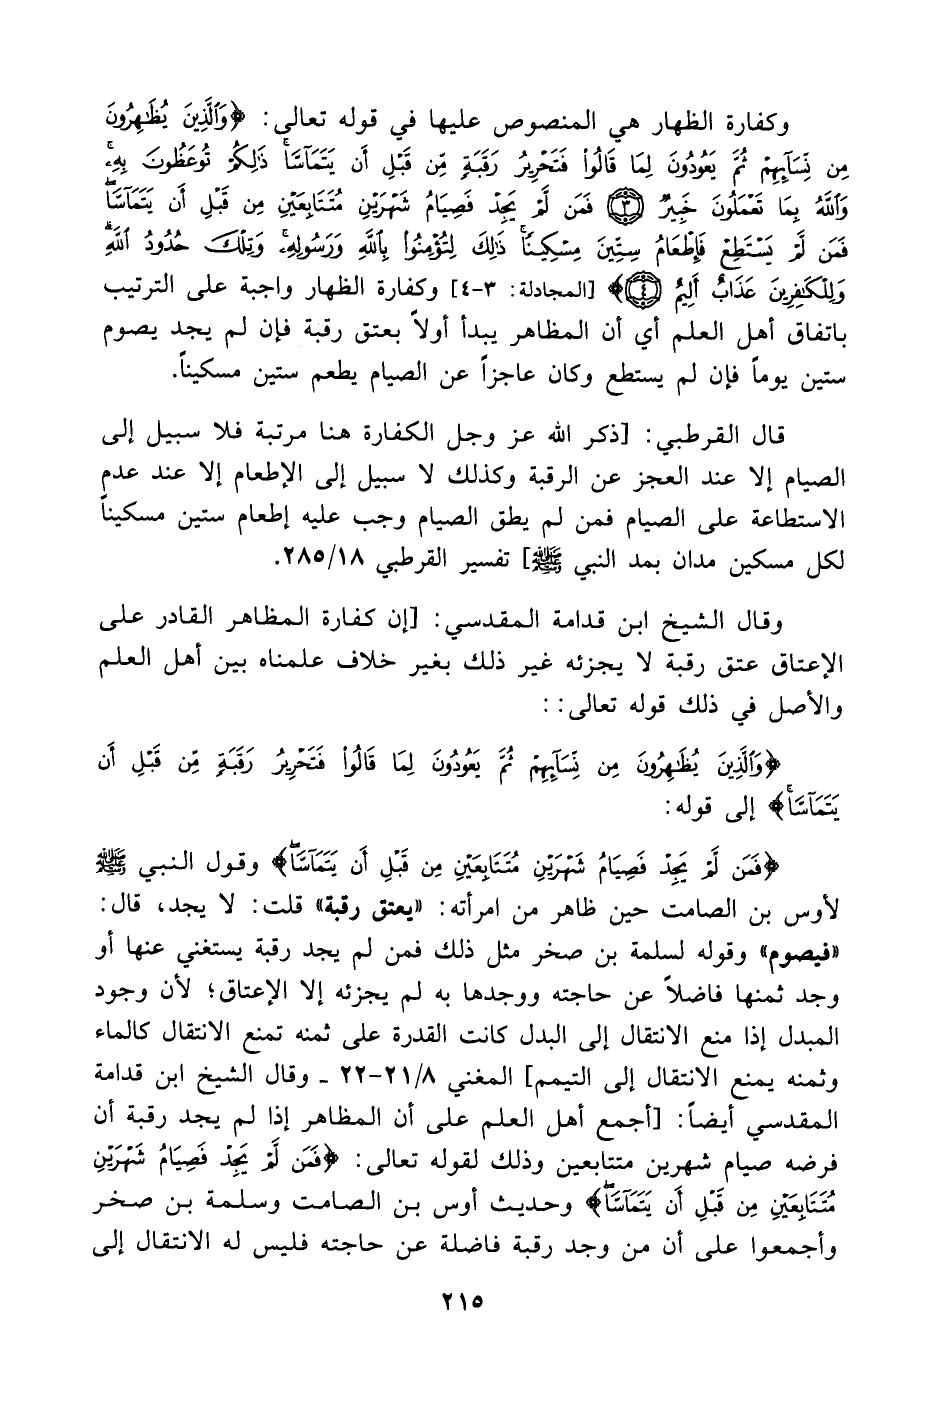 وكفارة الظهار هي المنصوص عليها في قوله تعالى: ﴿وَالَّذِينَ يُظَاهِرُونَ
مِن نِّسَائِهِمْ ثُمَّ يَعُودُونَ لِمَا قَالُوا فَتَحْرِيرُ رَقَبَةٍ مِّن قَبْلِ أَن يَتَمَاسَّا ذَلِكُمْ تُوعَظُونَ بِهِ
وَاللَّهُ بِمَا تَعْمَلُونَ خَبِيرٌ ٣ فَمَن لَّمْ يَجِدْ فَصِيَامُ شَهْرَيْنِ مُتَتَابِعَيْنِ مِن قَبْلِ أَن يَتَمَاسَّا
فَمَن لَّمْ يَسْتَطِعْ فَإِطْعَامُ سِتِّينَ مِسْكِينًا ذَلِكَ لِتُؤْمِنُوا بِاللَّهِ وَرَسُولِهِ وَتِلْكَ حُدُودُ اللَّهِ
وَلِلْكَافِرِينَ عَذَابٌ أَلِيمٌ ٤﴾ [المجادلة: ٣-٤] وكفارة الظهار واجبة على الترتيب
باتفاق أهل العلم أي أن المظاهر يبدأ أولاً بعتق رقبة فإن لم يجد يصوم
ستين يوماً فإن لم يستطع وكان عاجزاً عن الصيام يطعم ستين مسكيناً.
قال القرطبي: [ذكر الله عز وجل الكفارة هنا مرتبة فلا سبيل إلى
الصيام إلا عند العجز عن الرقبة وكذلك لا سبيل إلى الإطعام إلا عند عدم
الاستطاعة على الصيام فمن لم يطق الصيام وجب عليه إطعام ستين مسكيناً
لكل مسكين مدان بمد النبي ﷺ] تفسير القرطبي ٢٨٥/١٨.
وقال الشيخ ابن قدامة المقدسي: [إن كفارة المظاهر القادر على
الإعتاق عتق رقبة لا يجزئه غير ذلك بغير خلاف علمناه بين أهل العلم
والأصل في ذلك قوله تعالى: :
﴿وَالَّذِينَ يُظَاهِرُونَ مِن نِّسَائِهِمْ ثُمَّ يَعُودُونَ لِمَا قَالُوا فَتَحْرِيرُ رَقَبَةٍ مِّن قَبْلِ أَن
يَتَمَاسَّا﴾ إلى قوله:
﴿فَمَن لَّمْ يَجِدْ فَصِيَامُ شَهْرَيْنِ مُتَتَابِعَيْنِ مِن قَبْلِ أَن يَتَمَاسَّا﴾ وقول النبي ﷺ
لأوس بن الصامت حين ظاهر من امرأته: «يعتق رقبة» قلت: لا يجد، قال:
«فيصوم» وقوله لسلمة بن صخر مثل ذلك فمن لم يجد رقبة يستغني عنها أو
وجد ثمنها فاضلاً عن حاجته ووجدها به لم يجزئه إلا الإعتاق؛ لأن وجود
المبدل إذا منع الانتقال إلى البدل كانت القدرة على ثمنه تمنع الانتقال كالماء
وثمنه يمنع الانتقال إلى التيمم] المغني ٢١/٨-٢٢ ـ وقال الشيخ ابن قدامة
المقدسي أيضاً: [أجمع أهل العلم على أن المظاهر إذا لم يجد رقبة أن
فرضه صيام شهرين متتابعين وذلك لقوله تعالى: ﴿فَمَن لَّمْ يَجِدْ فَصِيَامُ شَهْرَيْنِ
مُتَتَابِعَيْنِ مِن قَبْلِ أَن يَتَمَاسَّا﴾ وحديث أوس بن الصامت وسلمة بن صخر
وأجمعوا على أن من وجد رقبة فاضلة عن حاجته فليس له الانتقال إلى
٢١٥